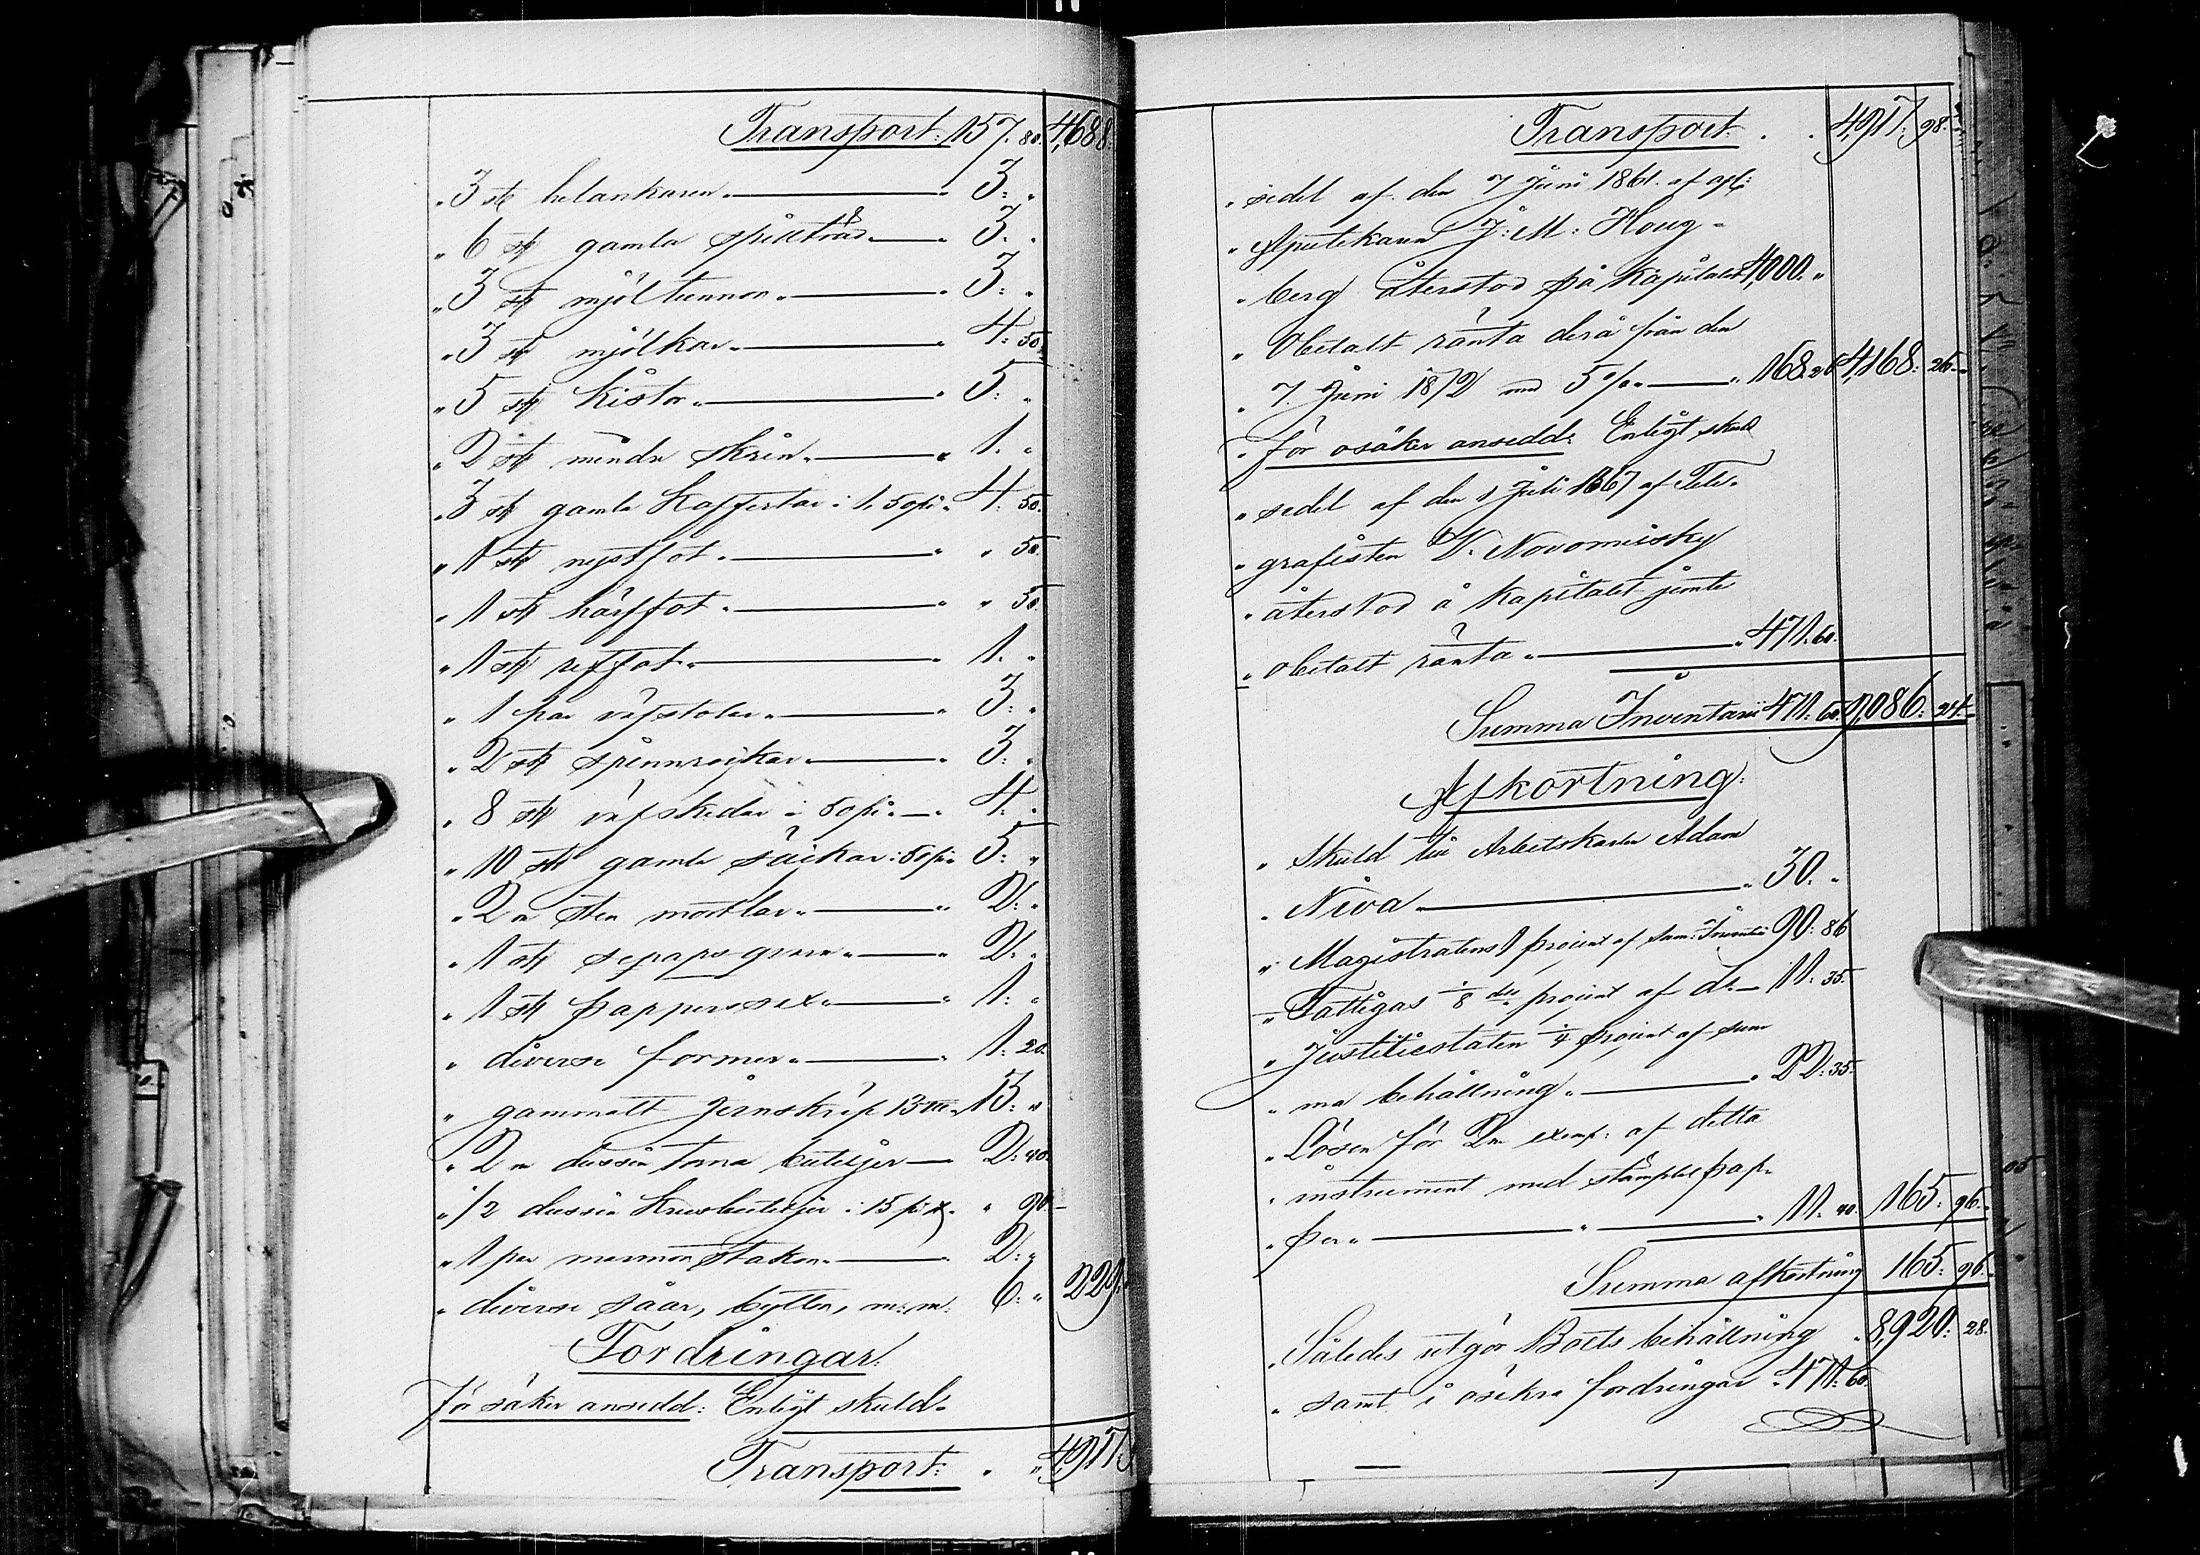 Transport: 157. 80. 4,688:
" 3 st helankaren " 3: "
" 6 st gamla " 3. "
" 3 st mjöltunnor " 3: "
" 3 st mjölkar " 4: 50.
" 5 st kistor " 5: "
" 2 st mindre skrin " 1. "
" 3 st gamla Koffertar : 1. 50 pi " 4: 50.
" 1 st nystfot " " 50.
" 1 st härffot " " 50.
" 1 st reffot " 1. "
" 1 par väfstolar " 3: "
" 2 st spinnrockar " 3. "
" 8 st väfskedar : 50 pi " 4. "
" 10 st gamla säckar : 50 pi " 5: "
" 2 a sten mortlar " 2: "
" 1 st " 2. "
" 1 st papperssax " 1: "
" diverse former " 1. 20.
" gammalt jernskräp " 13: "
" 2 a dussin toma buteljer 2: 40.
" 1/2 dussin Krusbuteljer : 15 pi " " 90.
" 1 par marmor stakar " 2: "
" diverse såar, byttor, m: m: 6: " 229:
Fordringar:
För säker ansedd: Enligt skuld-
Transport: . " 4,917:
Transport: . . 4,917: 98.
" sedel af den 7 Juni 1861. af afl:
" Apotekaren J: M: Houg-
" berg återstod på Kapitalet 4,000. "
" Obetalt ränta derå från den
" 7. Juni 1872 med 5 % " 168. 26 4,168: 26.
" för osäker ansedd: Enligt skuld
" sedel af den 1 Juli 1867 af Tele-
" grafisten V. Novomissky
" återstod å Kapitalet jemte
" obetalt ränta " 471. 60.
Summa Inventarii 471. 60. 9,086: 24.
Afkortning:
" Skuld till Arbetskarlen Adam
" Niva " 30. "
" Magistratens 1 procent af sam: Invent: 90: 86
" Fattigas 1/8 dels procent af d:o 11. 35.
" Justitiestaten 1/4 procent af sum
" ma behållning " 22: 35.
" Lösen för 2ne exemp: af detta
" instrument med stämplat pap-
" per " " 11. 40. 165: 96.
Summa afkortning 165: 96.
" Således utgör Boets behållning . 8,920: 28.
" samt i osäkra fordringar " 471: 60.